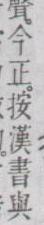 贤。今正。按漢書與